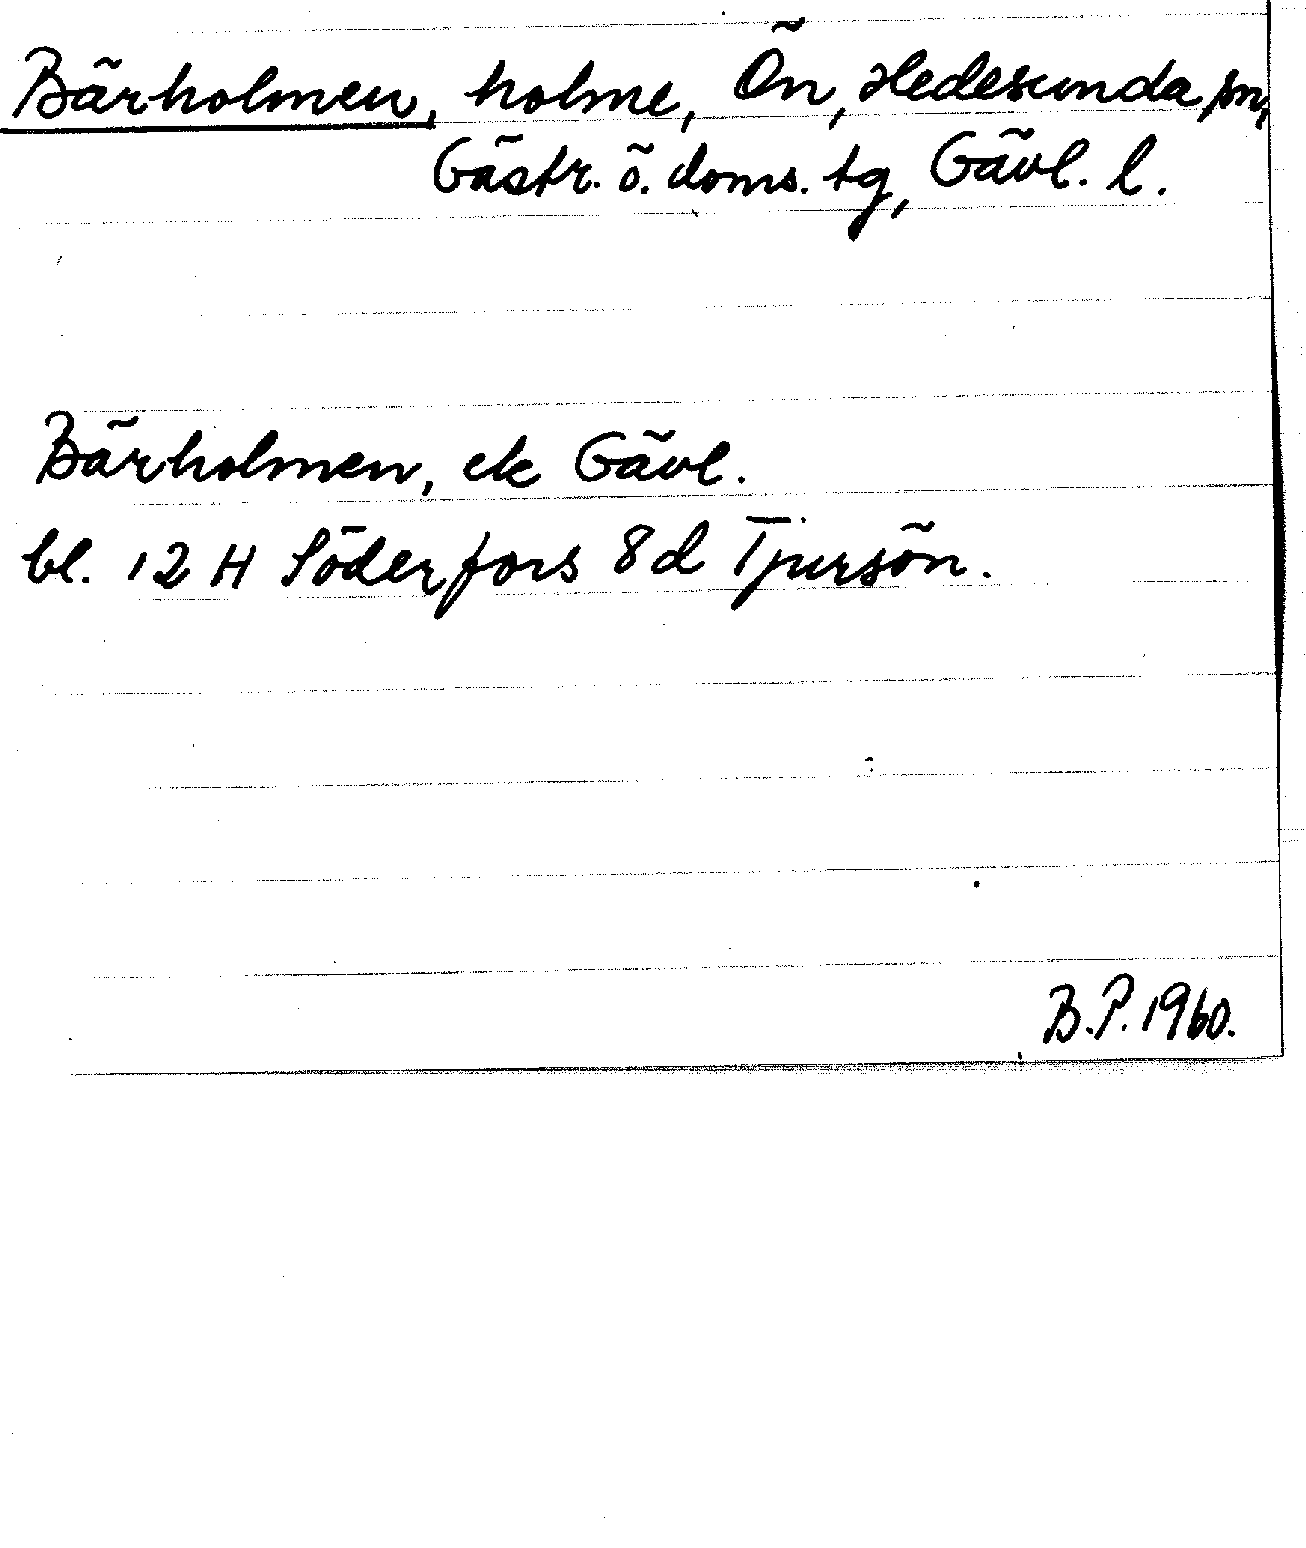 Bärholmen, holme, Ön, Hedesunda sn,
Gästr. ö. doms. tg, Gävl. l.
Bärholmen, ek Gävl.
bl. 12 H Söderfors 8 d Tjursön.
B.P. 1960.